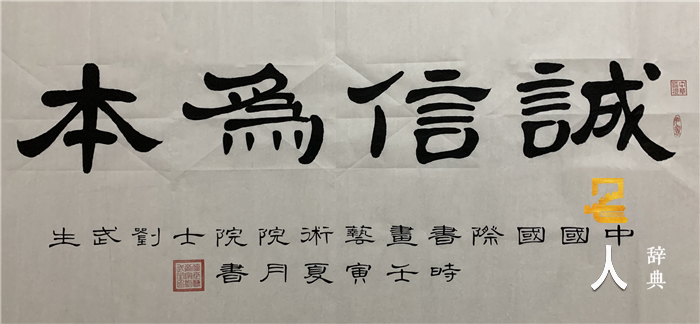 誠信為本
中國國際書畫藝術院院士劉武生
時壬寅夏月書
人
辞典